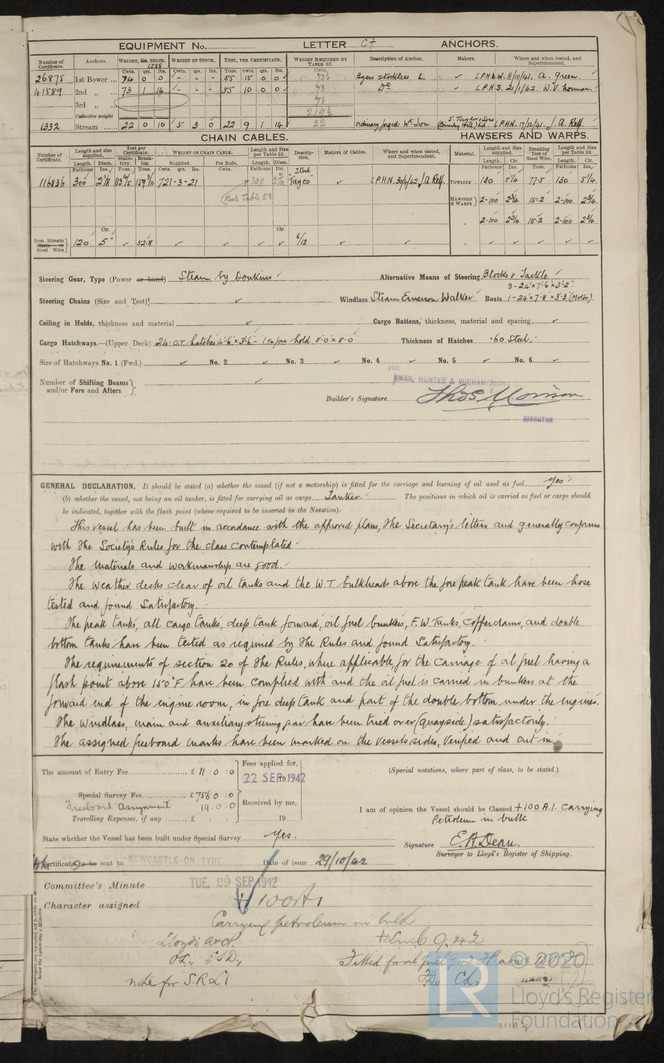 EQUIPMENT No. LETTER C† ANCHORS.
Number of Certificate. Anchors. WEIGHT, EX. STOCK. WEIGHT OF STOCK. TEST, PER CERTIFICATE. WEIGHT REQUIRED BY TABLE 53. Description of Anchor. Makers. Where and when tested, and Superintendent.
Cwts. qrs. lbs. Cwts. qrs. lbs. Tons. cwts. qrs. lbs. Cwts.
26875 1st Bower 74 0 0 - - - 55 15 0 0 73 Byers stockless L. ✓ L.P.H & W. 8/10/41. A. Green.
41589 2nd „ 73 1 14 - - - 55 10 0 0 73 Do ✓ L.P.H.S. 21/1/42 W.V. Norman.
3rd „ 73
Collective weight
1332 Stream 22 0 10 5 3 0 22 9 1 14 ordinary forged Wt. Iron L.P.H.N. 17/12/41. J.A. Relf.
CHAIN CABLES. HAWSERS AND WARPS.
Number of Certificate. Length and size supplied. Test per Certificate. WEIGHT OF CHAIN CABLE. Length and Size per Table 53. Description. Makers of Cables. Where and when tested, and Superintendent. Material. Length and size supplied. Breaking Test of Steel Wire. Length and Size per Table 53.
116836 300 2 1/8 721-3-21 300 Tayco ✓ L.P.H.N. 30/6/42 J.A. Relf. TOWLINE 130 5 1/4 77.5 130 5 1/4
(Rule Table 53) HAWSERS & WARPS 2-100 2 3/4 15.2 2-100 2 3/4
2-100 2 3/4 15.2 2-100 2 3/4
Iron Stream Steel Wire 120 5 ✓ 52.8 ✓ ✓ ✓ 6/12 ✓ ✓
Steering Gear, Type (Power or hand) Steam by Donkins Alternative Means of Steering Blocks & Tackle
3-24'×7'6×3'2
Steering Chains (Size and Test) ✓ Windlass Steam Emerson Walker Boats 1-24'×7'8×3'3 (Motor)
Ceiling in Holds, thickness and material ✓ Cargo Battens, thickness, material and spacing. ✓
Cargo Hatchways.—(Upper Deck) 24-O.T. hatches 4'6×3'6 - 1 to fore hold 8'0×8'0 Thickness of Hatches .60 Steel.
Size of Hatchways No. 1 (Fwd.) ✓ No. 2 ✓ No. 3 ✓ No. 4 ✓ No. 5 ✓ No. 6 ✓
Number of Shifting Beams and/or Fore and Afters ✓
FOR
SWAN, HUNTER & WIGHAM
Builder's Signature Thos Morison
DIRECTOR
GENERAL DECLARATION. It should be stated (a) whether the vessel (if not a motorship) is fitted for the carriage and burning of oil used as fuel Yes
(b) whether the vessel, not being an oil tanker, is fitted for carrying oil as cargo Tanker The positions in which oil is carried as fuel or cargo should
be indicated, together with the flash point (where required to be inserted in the Notation).
This vessel has been built in accordance with the approved plans, the Secretary's letters and generally conforms
with the Society's Rules for the class contemplated
The materials and workmanship are good.
The weather decks clear of oil tanks and the W.T bulkheads above the fore peak tank have been hose
tested and found satisfactory.
The peak tanks, all cargo tanks, deep tank forward, oil fuel bunkers, F.W. Tanks, Cofferdams, and double
bottom tanks have been tested as required by the Rules and found satisfactory.
The requirements of section 20 of the Rules, where applicable, for the carriage of oil fuel having a
flash point above 150°F have been complied with and the oil fuel is carried in bunkers at the
forward end of the engine room, in fore deep tank and part of the double bottom under the engines.
The windlass, main and auxiliary steering gear have been tried over (quayside) satisfactorily.
The assigned freeboard marks have been marked on the vessels sides, verified and cut in
The amount of Entry Fee £ 11 : 0 : 0 Fees applied for, (Special notations, where part of class, to be stated.)
22 SEP 1942
Special Survey Fee £ 756 0 : 0
Freeboard Assignment 19 : 0 : 0 Received by me,
Travelling Expenses, if any £ : : 19
I am of opinion the Vessel should be Classed +100 A.1. Carrying
Petroleum in bulk
State whether the Vessel has been built under Special Survey Yes.
Signature E.A. Dean.
Surveyor to Lloyd's Register of Shipping.
Certificate to be sent to NEWCASTLE-ON-TYNE Date of issue 29/10/42
Committee's Minute TUE. 29 SEP 1942
Character assigned +100A1
Carrying petroleum in bulk
Lloyds A&CP. +LMC 9.42
Fitted for oil fuel
FD, CL,
note for S.R.L
© 2020
LR
Lloyd's Register
Foundation